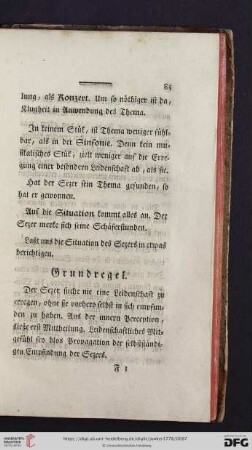 85
lung, als Konzert. Um so nöthiger ist da,
Klugheit in Anwendung des Thema.
In keinem Stük, ist Thema weniger fühl-
bar, als in der Sinfonie. Denn kein mu-
sikalisches Stük, zielt weniger auf die Erre-
gung einer besondern Leidenschaft ab, als sie.
Hat der Sezer sein Thema gefunden, so
hat er gewonnen.
Auf die Situation kommt alles an. Der
Sezer merkt sich seine Schäferstunden.
Laßt uns die Situation des Sezers in etwas
berichtigen.
Grundregel.
Der Sezer suche nie eine Leidenschaft zu
erregen, ohne sie vorhero selbst in sich empfun-
den zu haben. Aus der innern Perception,
fließe erst Mittheilung. Leidenschaftliches Mit-
gefühl sey blos Propagation der selbständi-
gen Empfindung der Sezers.
F 3
UNIVERSITÄTS-BIBLIOTHEK HEIDELBERG
Gefördert durch die
DFG